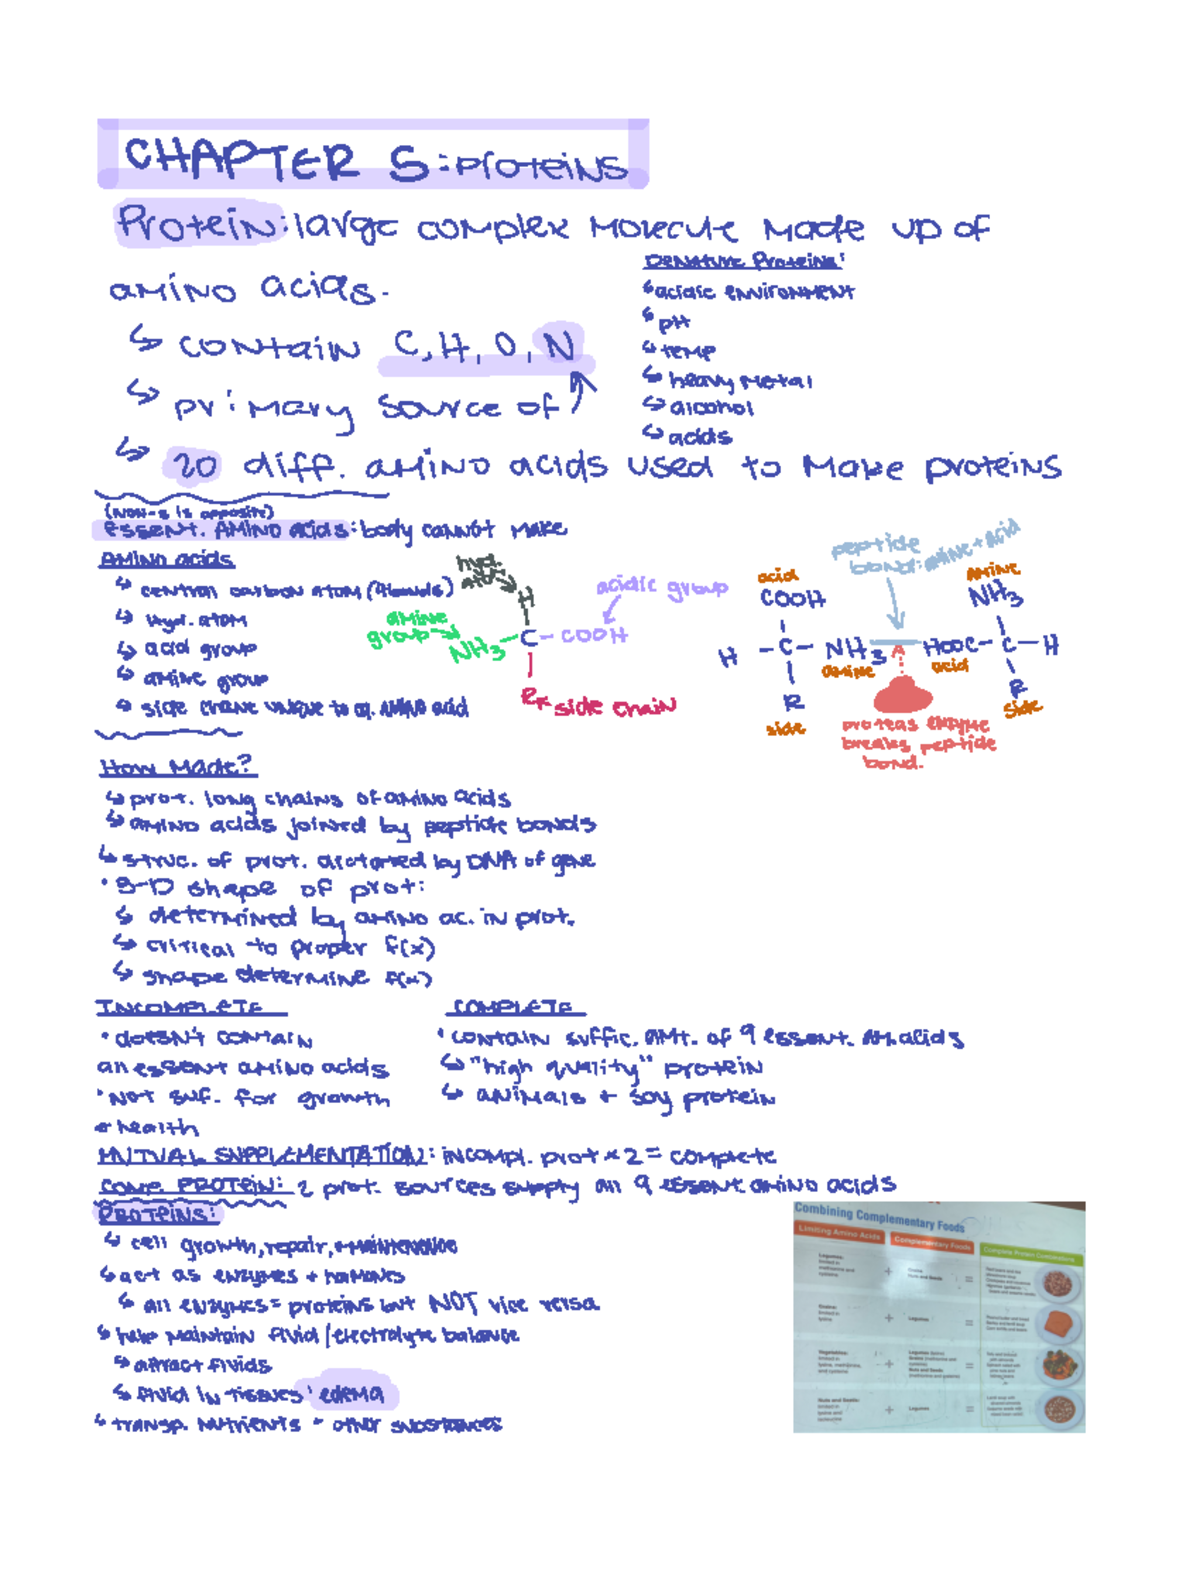 CHAPTER 5: proteins
Protein: large complex molecule made up of
amino acids.
↳ contain C, H, O, N
↳ primary source of
↳ 20 diff. amino acids used to make proteins
Denature Proteins:
↳ acidic environment
↳ pH
↳ temp
↳ heavy metal
↳ alcohol
↳ acids
(non-e is opposite)
essent. Amino acids: body cannot make
Amino acids
↳ central carbon atom
↳ hyd. atom
↳ acid group
↳ amine group
↳ side chane unique to amino acid
hyd. atom
H
acidic group
amine
group
NH3 - C - COOH
R
side chain
peptide
bond: amine + acid
acid
COOH
amine
NH3
H - C - NH3
HOOC - C - H
amine
acid
R
R
side
side
proteas enzyme
breaks peptide
bond.
How Made?
↳ prot. long chains of amino acids
↳ amino acids joined by peptide bonds
↳ struc. of prot. by DNA of gene
• 3-D shape of prot:
↳ determined by amino ac. in prot.
↳ critical to proper f(x)
↳ shape determine f(x)
INCOMPLETE
• doesn't contain
all essent amino acids
• Not suf. for growth
+ health
COMPLETE
• contain suffic. amt. of 9 essent. am. acids
↳ "high quality" protein
↳ animals + soy protein
MUTUAL SUPPLEMENTATION: incompl. prot x 2 = complete
COMP. PROTEIN: 2 prot. sources supply all 9 essent. amino acids
PROTEINS:
↳ cell growth, repair, + maintenance
↳ act as enzymes + hormones
↳ all enzymes = proteins but NOT vice versa
↳ help maintain fluid/electrolyte balance
↳ attract fluids
↳ fluid in tissues: edema
↳ transp. nutrients + other substances
Combining Complementary Foods
Limiting Amino Acids
Complementary Foods
Complete Protein Combinations
Legumes:
limited in
methionine and
cysteine
+
Grains
Nuts and Seeds
=
Grains:
limited in
lysine
+
Legumes
=
Vegetables:
limited in
lysine, methionine,
and cysteine
+
=
Nuts and Seeds:
limited in
lysine and
+
Legumes
=